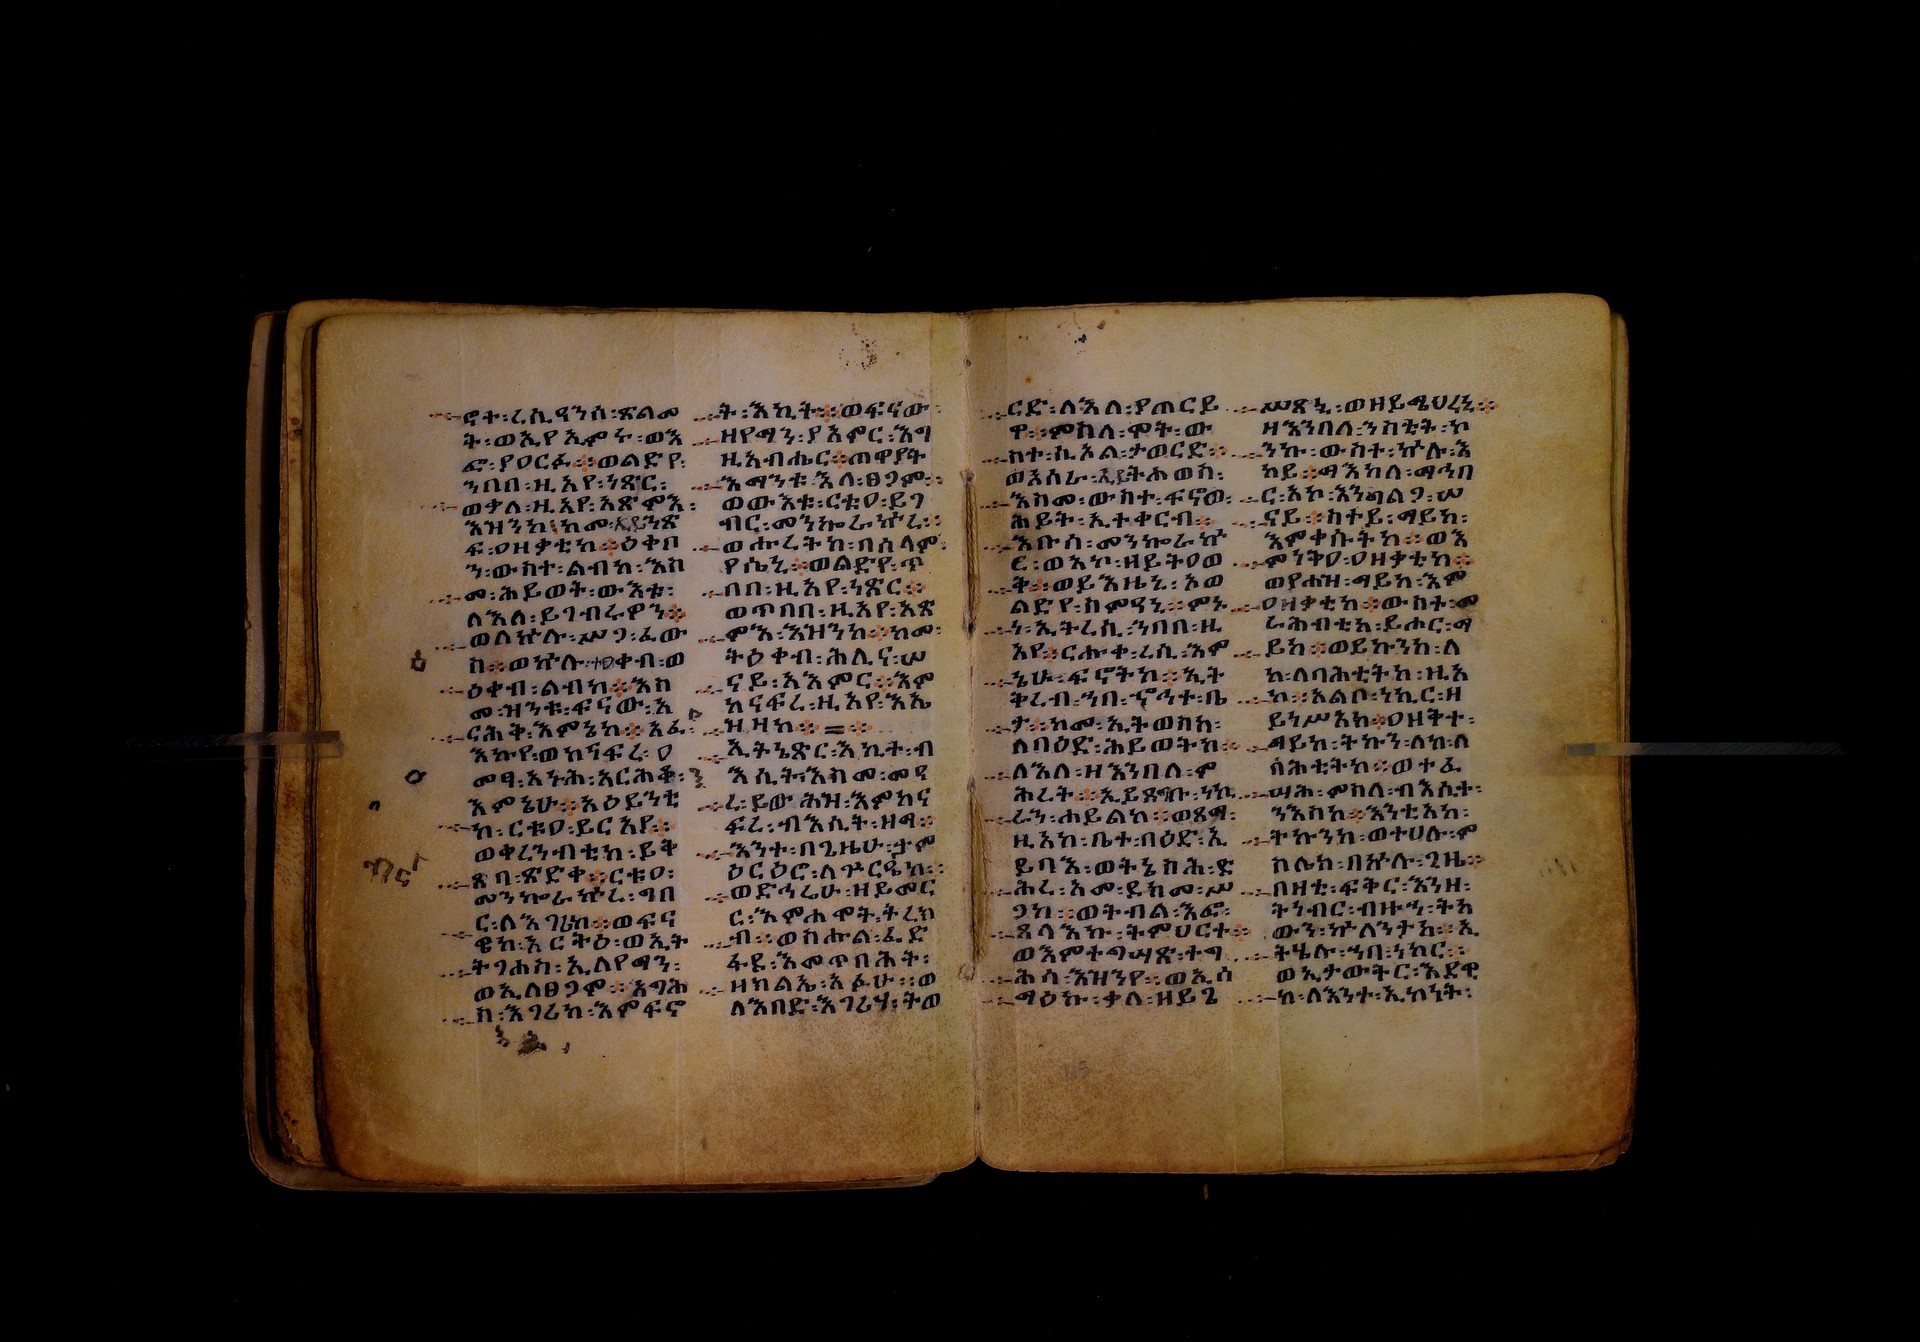 ኖተ፡ረሲዓንሰ፡ጽልመ
ት፡ወኢየአምሩ፡ወእ
ፎ፡ያዐርፉ፨ወልድየ፡
ንበበ፡ዚአየ፡ነጽር፡
ወቃለ፡ዚአየ፡አጽምእ፡
እዝንከ፡ከመ፡ኢይንጽ
ፍ፡ዐዘቃቲከ፨ዕቀበ
ን፡ውስተ፡ልብከ፡እስ
መ፡ሕይወት፡ውእቱ፡
ለእለ፡ይገብሩዎን፨
ወለኵሉ፡ሥጋ፡ፈው
ስ፨ወኵሉ፡ተዐቀብ፡ወ
ዕቀብ፡ልብከ፨እስ
መ፡ዝንቱ፡ፍናው፡አ
ርሕቅ፡እምኔከ፨አፈ፡
እኩየ፡ወከናፍረ፡ዐ
መፃ፡አኑሕ፡አርሕቅ፡
እምኔሁ፨አዕይንቲ
ከ፡ርቱዐ፡ይርአያ፨
ወቀረንብቲከ፡ይቅ
ጽባ፡ጽድቀ፨ርቱዐ፡
መንኰራኵረ፡ግበ
ር፡ለእገሪከ፨ወፍና
ዌከ፡አርትዕ፡ወኢት
ትገሐስ፡ኢለየማን፡
ወኢለፀጋም፨አግሕ
ስ፡እገሪከ፡እምፍኖ
ት፡እኪት፨ወፍናው፡
ዘየማን፡ያአምር፡እግ
ዚአብሔር፨ጠዋያት
እማንቱ፡እለ፡ፀጋም፨
ወውእቱ፡ርቱዐ፡ይገ
ብር፡መንኰራኵረ፨
ወሑረትከ፡በሰላም፡
የሴኒ፨ወልድየ፡ጥ
በበ፡ዚአየ፡ነጽር፨
ወጥበበ፡ዚአየ፡አጽ
ምእ፡እዝንከ፨ከመ፡
ትዕቀብ፡ሕሊና፡ሠ
ናይ፡አአምር፨እም
ከናፍረ፡ዚአየ፡እኤ
ዝዘከ፨=፨
ኢትነጽር፡እኪት፡ብ
እሲት፡እስመ፡መዓ
ረ፡ይውሕዝ፡እምከና
ፍረ፡ብእሲት፡ዘማ፨
እንተ፡በጊዜሁ፡ታም
ዕርዕሮ፡ለጕርዔከ፨
ወድኅሬሁ፡ዘይመር
ር፡እምሐሞት፡ትረክ
ብ፨ወስሑል፡ፈድ
ፋደ፡እመጥበሕት፡
ዘክልኤ፡አፉሁ፨ወ
ለእበድ፡እገሪሃ፡ትወ
ርድ፡ለእለ፡ያጠርይ
ዋ፨ምስለ፡ሞት፡ው
ስተ፡ሲኦል፡ታወርድ፨
ወአሰራ፡ኢይትሐወስ፡
እስመ፡ውስተ፡ፍኖወ፡
ሕይት፡ኢተቀርብ፨
እቡስ፡መንኰራኵ
ር፡ወአኮ፡ዘይትዐወ
ቅ፨ወይእዜኒ፡አወ
ልድየ፡ስምዓኒ፨ምኑ
ነ፡ኢትረሲ፡ንበበ፡ዚ
አየ፨ርሑቀ፡ረሲ፡እም
ኔሁ፡ፍኖትከ፨ኢት
ቅረብ፡ኀበ፡ኖኅተ፡ቤ
ታ፨ከመ፡ኢትወስክ፡
ለባዕድ፡ሕይወትከ፨
ለእለ፡ዘእንበለ፡ም
ሕረት፨ኢይጸግቡ፡ነኪ
ራን፡ሐይልከ፨ወጻማ፡
ዚአከ፡ቤተ፡በዕድ፡ኢ
ይባእ፡ወትኔስሕ፡ድ
ሕረ፡አመ፡ደክመ፡ሥ
ጋከ፨ወትብል፡እፎ፡
ጸላእኩ፡ትምህርተ፨
ወእምተግሣጽ፡ተግ
ሕሰ፡እዝንየ፨ወኢሰ
ማዕኩ፡ቃለ፡ዘይጌ
ሥጸኒ፡ወዘይሜህረኒ፨
ዘእንበለ፡ንስቲት፡ኮ
ንኩ፡ውስተ፡ኵሉ፡እ
ከይ፨ማእከለ፡ማኅበ
ር፡አኮ፡እንግልጋ፡ሠ
ናይ፨ስተይ፡ማይከ፡
እምቀሱትከ፨ወእ
ምነቅዐ፡ዐዘቃቲከ፨
ወየሐዝ፡ማይከ፡እም
ዐዘቃቲከ፨ውስተ፡መ
ራሕብቲከ፡ይሑር፡ማ
ይከ፨ወይኩንከ፡ለ
ከ፡ለባሕቲትከ፡ዚአ
ከ፨አልቦ፡ነኪር፡ዘ
ይነሥአከ፨ዐዘቅተ፡
ማይከ፡ትኩን፡ለከ፡ለ
ባሕቲትከ፨ወተፈ
ሣሕ፡ምስለ፡ብእሲተ፡
ንእስከ፨እንቲአከ፡
ትኩንከ፡ወተሀሉ፡ም
ስሌከ፡በኵሉ፡ጊዜ፨
በዘቲ፡ፍቅር፡እንዘ፡
ትነብር፡ብዙኀ፡ትከ
ውን፡ኵለንታከ፨ኢ
ትሄሉ፡ኀበ፡ነኪር፨
ወኢታውትር፡እደዊ
ከ፡ለእንተ፡ኢኮነት፡